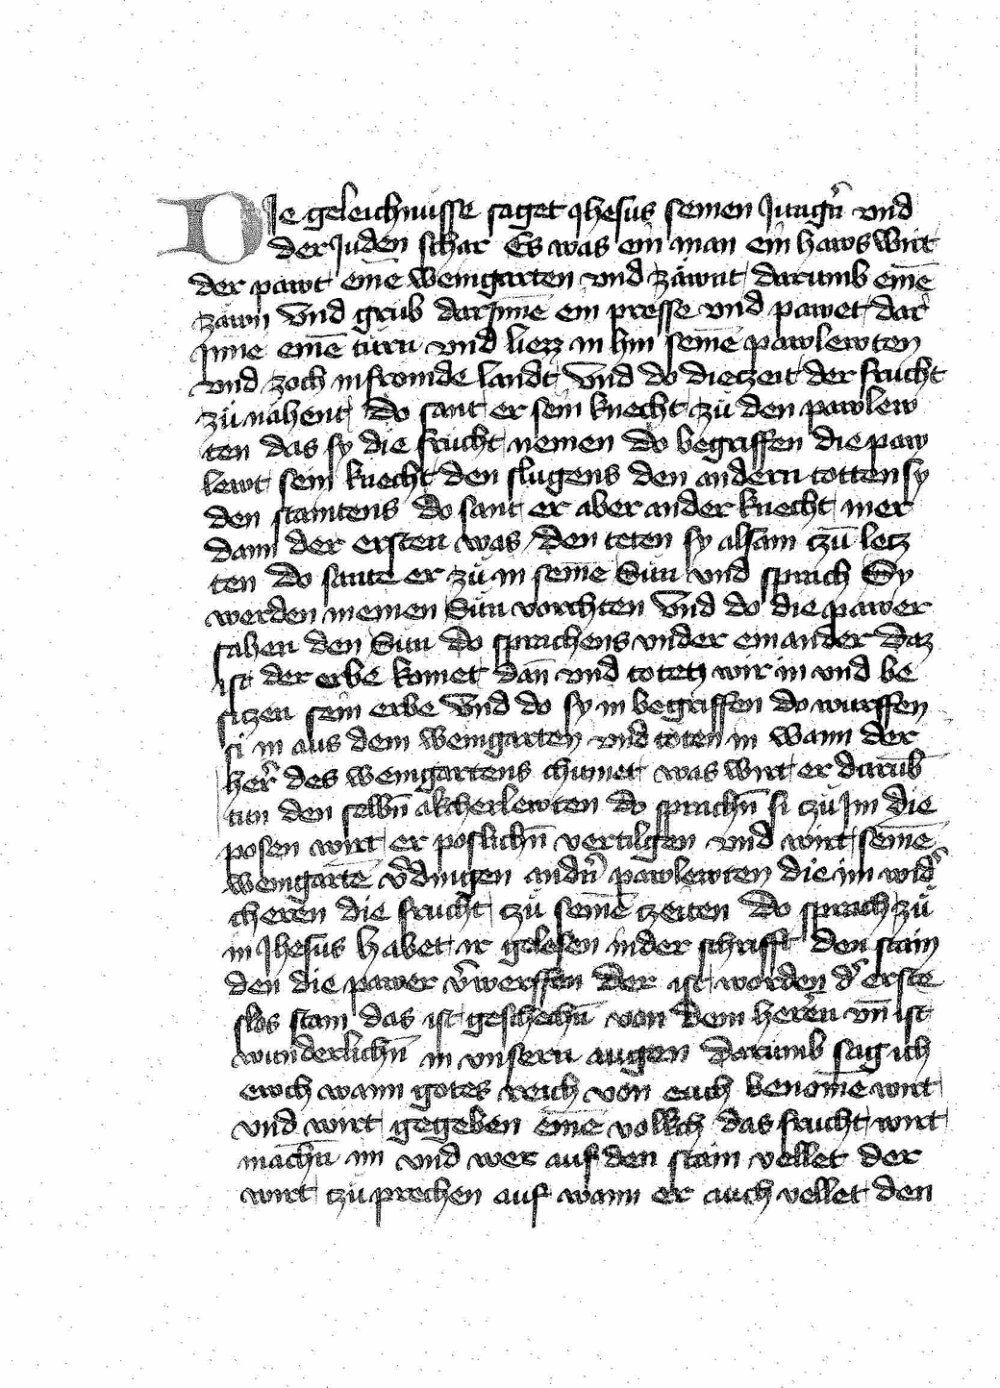 DIe geleichnusse saget Jhesus seinen Jungn̄ vnd
der Juden schar Es was ein man ein hawswirt
der pawt einē weingarten vnd zäwnt darumb einē
zawn Vnd grub darJnnē ein presse vnd pawet dar
Jnne einē turn vnd liezz in hin seinē pawlewten
vnd zoch in fromde landt Vnd do die zeit der frucht
zu nahent Do sant er sein knecht zu den pawlew
ten das sy die frucht nemen Do begriffen die paw
lewt sein knecht den slugens den andern totten sy
den staintens Do sant er aber ander knecht mer
dann der ersten was den teten sy alsam czu lecz
ten Do sante er zu in seinē Sun vnd sprach Sy
werden meinen Sun vorchten Vnd do die pawer
sahen den Sun do sprachens vnder einander daz
ist der erbe komet dan̄ vnd toten wir in vnd be
siczen sein erbe Vnd do sy in begriffen do wurffen
si in aus dem weingarten vnd toten in Wann der
her̄ des weingartens chumet was wirt er darūb
tun den selbn̄ akcherlewten do sprachn̄ si zu Jm die
posen wirt er poslichn̄ vertilgen vnd wirt seinē
weingartē v̄dingen andn̄ pawlewten die im wid̄
cheren die frucht czu seinē czeiten Do sprach zu
in Jhesus Habet ir gelesen in der schrifft den stain
den die pawer v̄werffen der ist worden d̄ erste
slos stain das ist geschechn̄ von dem heren vn̄ ist
wunderlichn̄ in vnsern augen Darumb sag ich
ewch wann gotes reich von euch benomē wirt
vnd wirt gegeben einē volkch das frucht wirt
machn̄ im vnd wer auf den stain vellet der
wirt zu prechen auf wann er auch vellet den